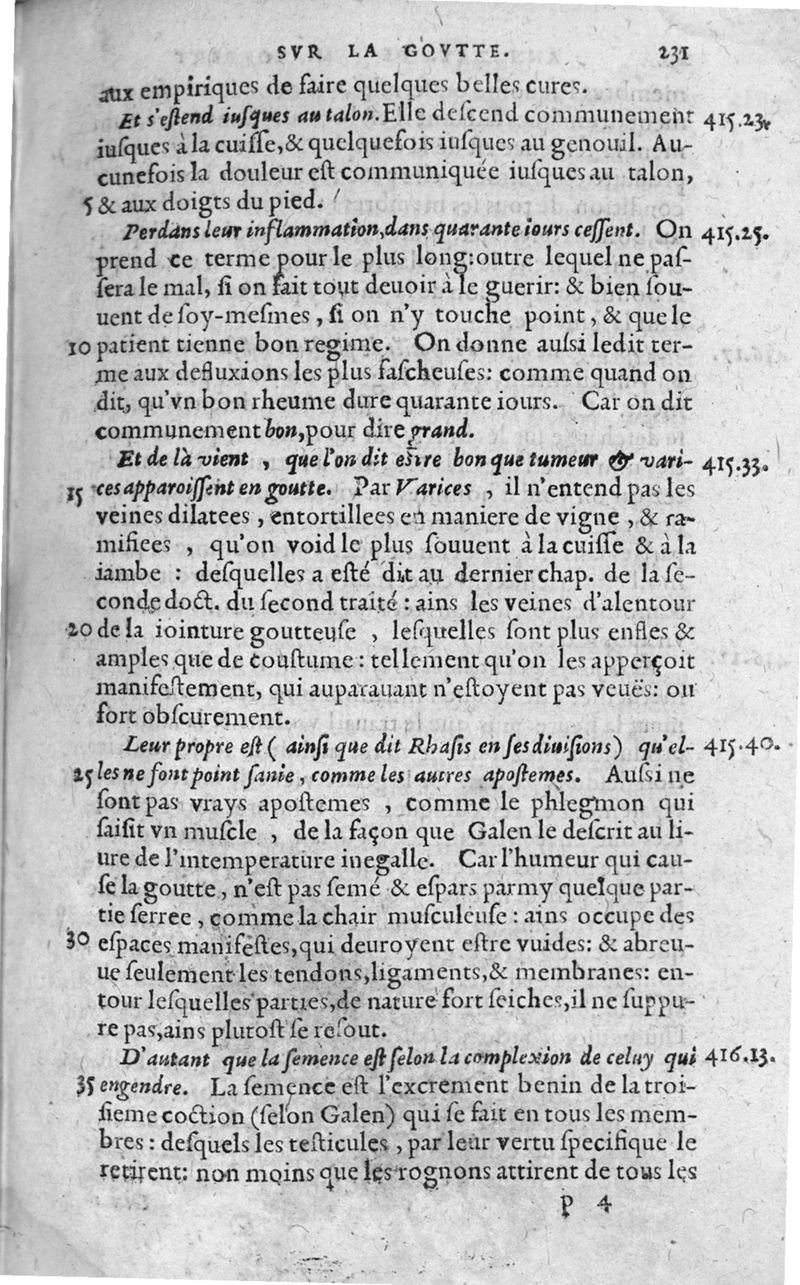 SVR LA GOVTTE. 231
aux empiriques de faire quelques belles cures.
Et s'eſtend iuſques au talon. Elle deſcend communement 415.23.
iuſques à la cuiſſe,& quelquefois iuſques au genouil. Au-
cunefois la douleur eſt communiquée iuſques au talon,
5 & aux doigts du pied.
Perdans leur inflammation,dans quarante iours ceſſent. On 415.25.
prend ce terme pour le plus long:outre lequel ne paſ-
ſera le mal, ſi on fait tout deuoir à le guerir: & bien ſou-
uent de ſoy-meſmes , ſi on n'y touche point , & que le
10 patient tienne bon regime. On donne auſsi ledit ter-
me aux defluxions les plus faſcheuſes: comme quand on
dit, qu'vn bon rheume dure quarante iours. Car on dit
communement bon,pour dire grand.
Et de là vient , que l'on dit eſtre bon que tumeur & vari- 415.33.
15 ces apparoiſſent en goutte. Par Varices , il n'entend pas les
veines dilatees , entortillees en maniere de vigne , & ra-
mifiees , qu'on void le plus ſouuent à la cuiſſe & à la
iambe : deſquelles a eſté dit au dernier chap. de la ſe-
conde doct. du ſecond traité : ains les veines d'alentour
20 de la iointure goutteuſe , leſquelles ſont plus enfles &
amples que de couſtume : tellement qu'on les apperçoit
manifeſtement, qui auparauant n'eſtoyent pas veuës: ou
fort obſcurement.
Leur propre eſt ( ainſi que dit Rhaſis en ſes diuiſions) qu'el- 415.40.
25 les ne font point ſanie , comme les autres apoſtemes. Auſsi ne
ſont pas vrays apoſtemes , comme le phlegmon qui
ſaiſit vn muſcle , de la façon que Galen le deſcrit au li-
ure de l'intemperature inegalle. Car l'humeur qui cau-
ſe la goutte , n'eſt pas ſemé & eſpars parmy quelque par-
tie ſerree , comme la chair muſculeuſe : ains occupe des
30 eſpaces manifeſtes,qui deuroyent eſtre vuides: & abreu-
ue ſeulement les tendons,ligaments,& membranes: en-
tour leſquelles parties,de nature fort ſeiches,il ne ſuppu-
re pas,ains plutoſt ſe reſout.
D'autant que la ſemence eſt ſelon la complexion de celuy qui 416.13.
35 engendre. La ſemence eſt l'excrement benin de la troi-
ſieme coction (ſelon Galen) qui ſe fait en tous les mem-
bres : deſquels les teſticules , par leur vertu ſpecifique le
retirent: non moins que les rognons attirent de tous les
P 4